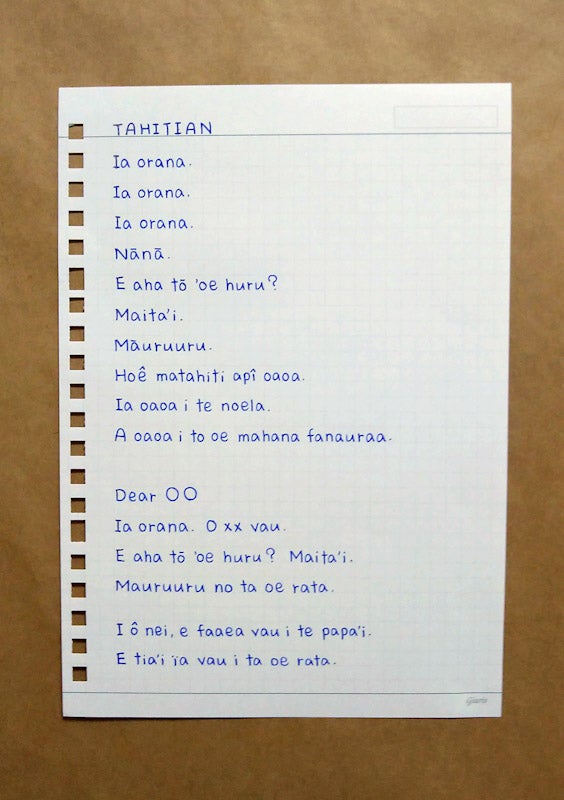 TAHITIAN
Ia orana.
Ia orana.
Ia orana.
Nānā.
E aha tō 'oe huru?
Maita'i.
Māuruuru.
Hoê matahiti apî oaoa.
Ia oaoa i te noela.
A oaoa i to oe mahana fanauraa.
Dear OO
Ia orana. O xx vau.
E aha tō 'oe huru? Maita'i.
Mauruuru no ta oe rata.
I ô nei, e faaea vau i te papa'i.
E tia'i ïa vau i ta oe rata.